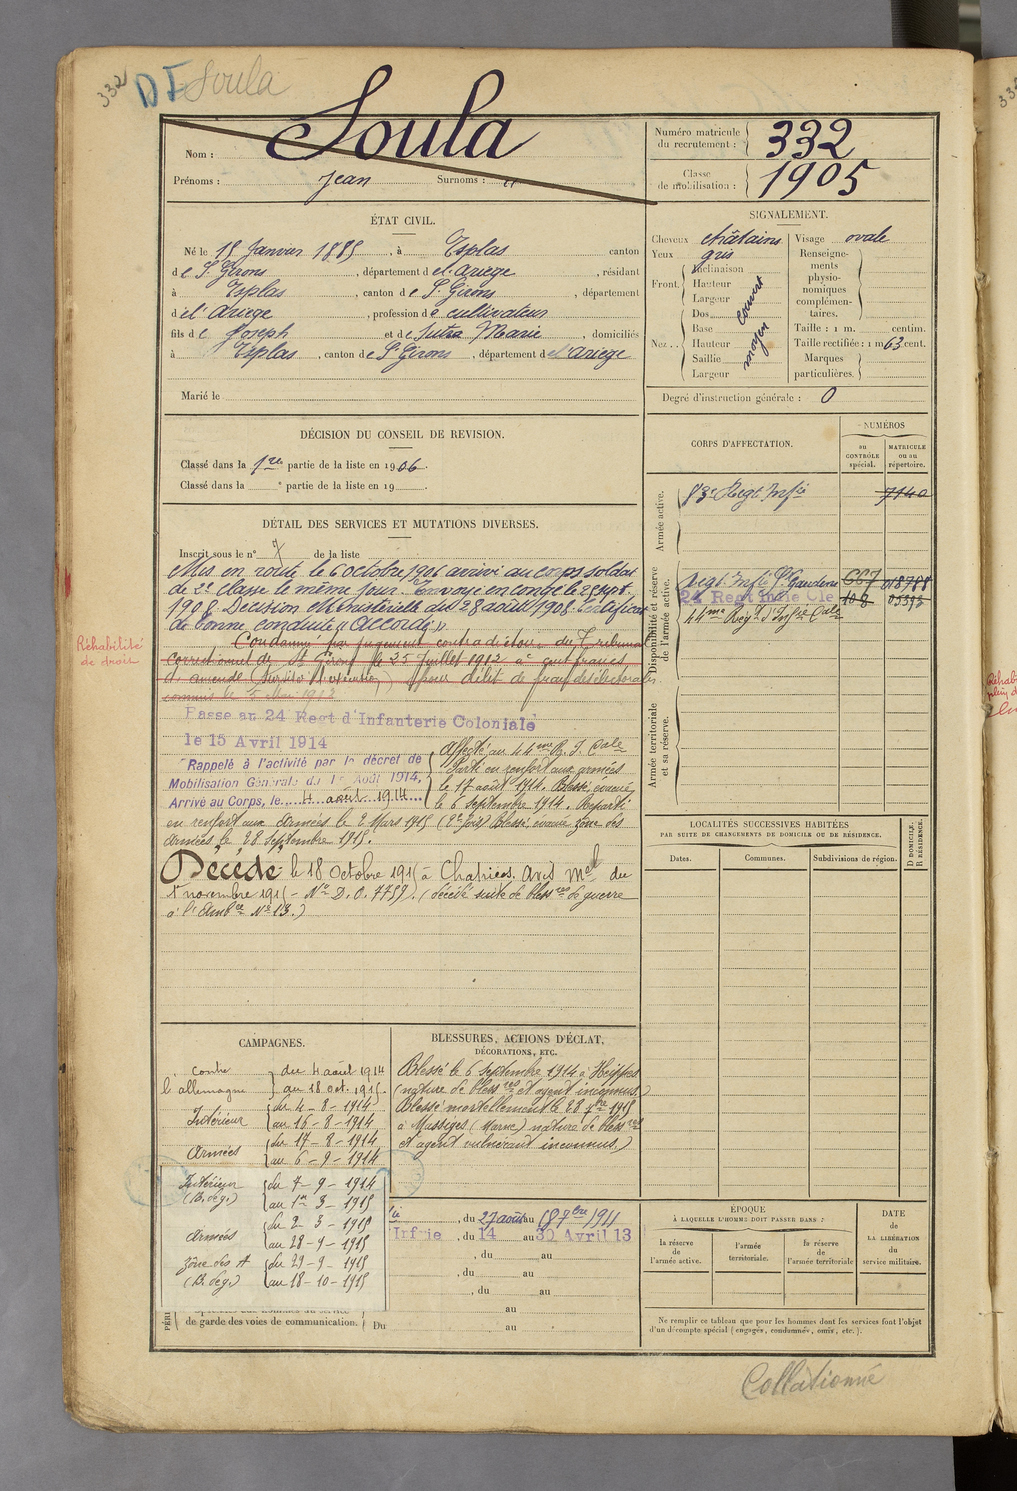 332 DF Soula
Nom : Soula
Prénoms : Jean Surnoms : "
Numéro matricule du recrutement : 332
Classe de mobilisation : 1905
ÉTAT CIVIL.
Né le 15 Janvier 1885, à Esplas canton
de St Girons, département de l'Ariège, résidant
à Esplas, canton de St Girons, département
de l'Ariège, profession de cultivateur
fils de Joseph et de Sutra Marie, domiciliés
à Esplas, canton de St Girons, département de l'Ariège
Marié le
SIGNALEMENT.
Cheveux châtains
Yeux gris
Front. Inclinaison
Hauteur
Largeur
couvert
Nez. Dos
Base
Hauteur
Saillie
Largeur
moyen
Visage ovale
Renseignements physionomiques complémentaires.
Taille : 1 m. centim.
Taille rectifiée : 1 m 63 cent.
Marques particulières.
Degré d'instruction générale : 0
DÉCISION DU CONSEIL DE REVISION.
Classé dans la 1re partie de la liste en 1906.
Classé dans la ° partie de la liste en 19
DÉTAIL DES SERVICES ET MUTATIONS DIVERSES.
Inscrit sous le n° 7 de la liste
Mis en route le 6 octobre 1906 arrivé au corps soldat
de 2e classe le même jour. Envoyé en congé le 25 sept.
1908. Décision Ministérielle du 28 août 1908. Certificat
de bonne conduite "Accordé".
Condamné par jugement contradictoire du Tribunal
correctionnel de St Girons le 25 Juillet 1912 à cent francs
d'amende (sursis à l'exécution) pour délit de fraudes électorales
commis le 5 Mai 1912
Réhabilité
de droit
Passe au 24 Regt d'Infanterie Coloniale
le 15 Avril 1914
Rappelé à l'activité par le décret de
Mobilisation Générale du 1er Août 1914,
Arrivé au Corps, le 4 août 1914
Affecté au 44me R. I. Cale
Parti en renfort aux armées
le 17 août 1914. Blessé, évacué
le 6 Septembre 1914. Reparti
en renfort aux armées le 2 Mars 1915 (2e fois) Blessé, évacué zône des
armées, le 28 Septembre 1915.
Décédé le 18 octobre 1915 à Chatrices. Avis Mel du
1er novembre 1915 - No D. O. 7759). (décédé suite de blessres de guerre
à l'Ambce No 13.)
CORPS D'AFFECTATION.
NUMÉROS
au CONTRÔLE spécial.
MATRICULE ou au répertoire.
Armée active.
83e Régt Infie 7140
Disponibilité et réserve de l'armée active.
Régt. Infie St Gaudens 667 018788
24 Regt Infie Cle 108 05393
44me Régt d'Infie Cale
Armée territoriale et sa réserve.
LOCALITÉS SUCCESSIVES HABITÉES
PAR SUITE DE CHANGEMENTS DE DOMICILE OU DE RÉSIDENCE.
Dates. Communes. Subdivisions de région.
D DOMICILE.
R RÉSIDENCE.
CAMPAGNES.
contre du 4 août 1914
l'allemagne au 18 oct. 1915.
Intérieur du 4-8-1914
au 16-8-1914
Armées du 17-8-1914
au 6-9-1914
Intérieur du 7-9-1914
(B. de g.) au 1er 3-1915
Armées du 2-3-1915
au 28-9-1915
zône des A du 29-9-1915
(B. de g.) au 18-10-1915
BLESSURES, ACTIONS D'ÉCLAT,
DÉCORATIONS, ETC.
Blessé le 6 septembre 1914 à Heippes
(nature de blessres et agent inconnus.)
Blessé mortellement le 28 7bre 1915
à Massiges (Marne) nature de blessres
et agent vulnérant inconnus.)
, du 27 août au 18 7bre 1911
Infrie , du 14 au 30 Avril 13
, du au
, du au
, du au
au
de garde des voies de communication. Du , au
ÉPOQUE
À LAQUELLE L'HOMME DOIT PASSER DANS :
la réserve de l'armée active.
l'armée territoriale.
la réserve de l'armée territoriale
DATE
de
LA LIBÉRATION
du
service militaire.
Ne remplir ce tableau que pour les hommes dont les services font l'objet
d'un décompte spécial (engagés, condamnés, omis, etc.).
Collationné